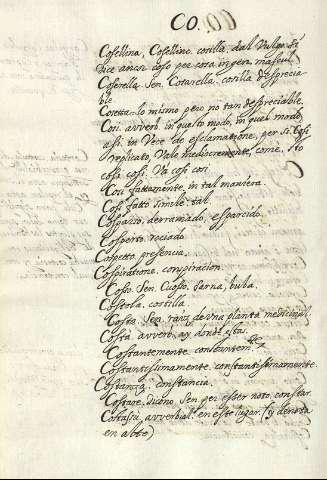 CO.
Cosellina, Cosellino. cosilla. dal Vulgo si
dice ancor coso per cosa in gen. mascul.
Coserella. Sen. Cotarella. cosilla despreciable
Cosetta. lo mismo pero no tan despreciable.
Così. avverb. in questo modo, in qual modo,
así. in Vece de esclamazione, per sì. Così
replicato, Vale mediocremente, come. sto
così così. Và così così
Così fattamente, in tal maniera.
Così fatto simile. tal.
Cosparso, derramado, esparcido.
Cosperto. rociado
Cospetto, presencia.
Cospiratione. conspiracion.
Cosso. Sen. Cuosso. sarna, buba.
Costola, costilla
Costo. Sen. raiz de una planta medicinal.
Costà. avverb. ay donde estas.
Costantemente constantemte
Costantissimamente. constantissimamente.
Costanza. constancia.
Costare. dicono Sen. per esser noto. constar.
Costassù. avverbial. en este lugar. (y denota
en alto)